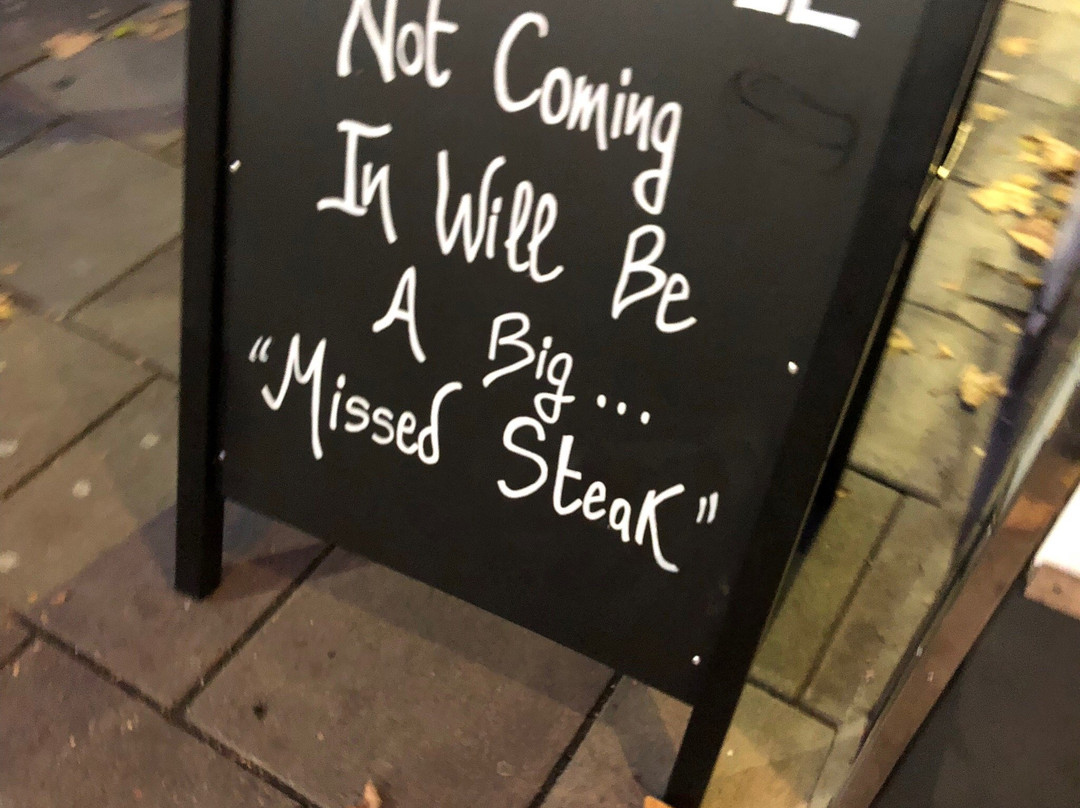 Not Coming
In Will Be
A Big...
"Missed Steak"